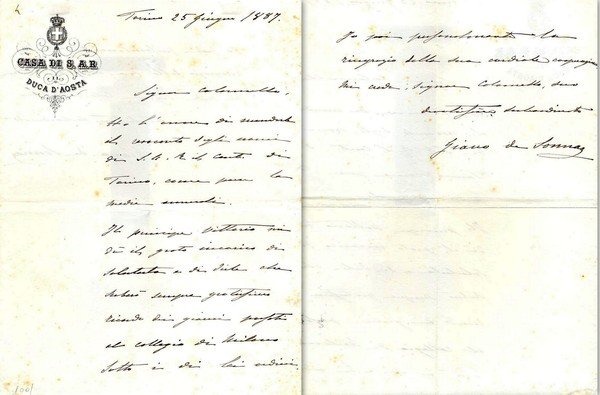 CASA DI S.A.R.
DUCA D'AOSTA
Torino 25 giugno 1887.
Signor colonnello
Ho l'onore di mandarle
il resoconto degli esami
di S.A.R. il Conte di
Torino, come pure la
media annuale.
Il principe Vittorio mi
dà il grato incarico di
salutarla e di dirle che
serberà sempre gratissimo
ricordo dei giorni passati
al collegio di Milano
sotto i di lei ordini.
Io poi personalmente la
ringrazio della sua cordiale
mi creda signor Colonnello, suo
devotissimo subordinato
Giano de Sonnaz